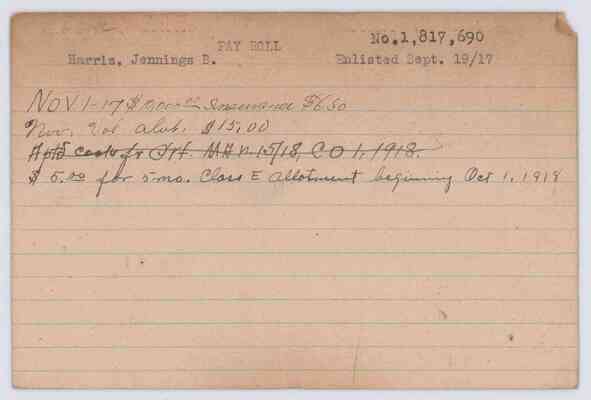 PAY ROLL No.1,817,690
Harris, Jennings B. Enlisted Sept. 19/17
Nov 1-17 $ Insurance $6.50
Nov. Vol. alot. $15.00
cook fr 15/18, C O 1, 1918.
$5.00 for 5 mo. Class E allotment beginning Oct 1, 1918